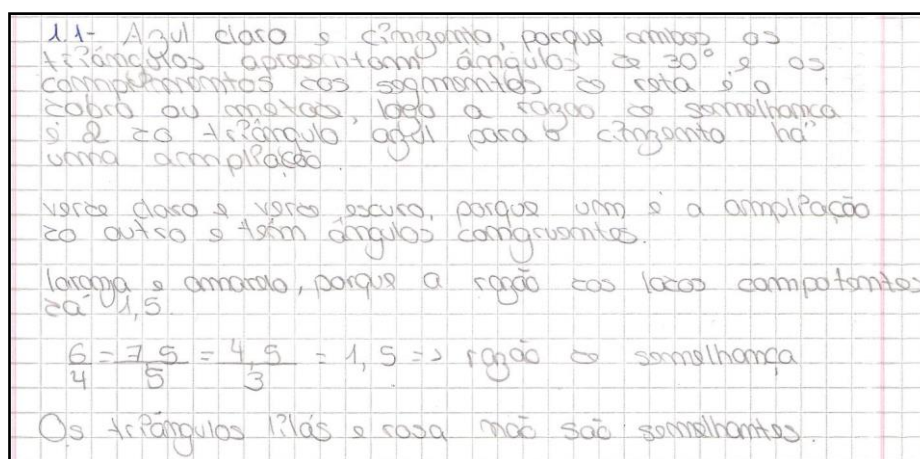 1.1- Azul claro e cinzento, porque ambos os
triângulos apresentam ângulos de 30° e os
comprimentos dos segmentos de reta é o
dobro ou metade, logo a razão de semelhança
é 2 do triângulo azul para o cinzento há
uma ampliação.
verde claro e verde escuro, porque um é a ampliação
do outro e têm ângulos congruentes.
laranja e amarelo, porque a razão dos lados
dá 1,5.
6/4 = 7,5/5 = 4,5/3 = 1,5 => razão de semelhança
Os triângulos lilás e rosa não são semelhantes.